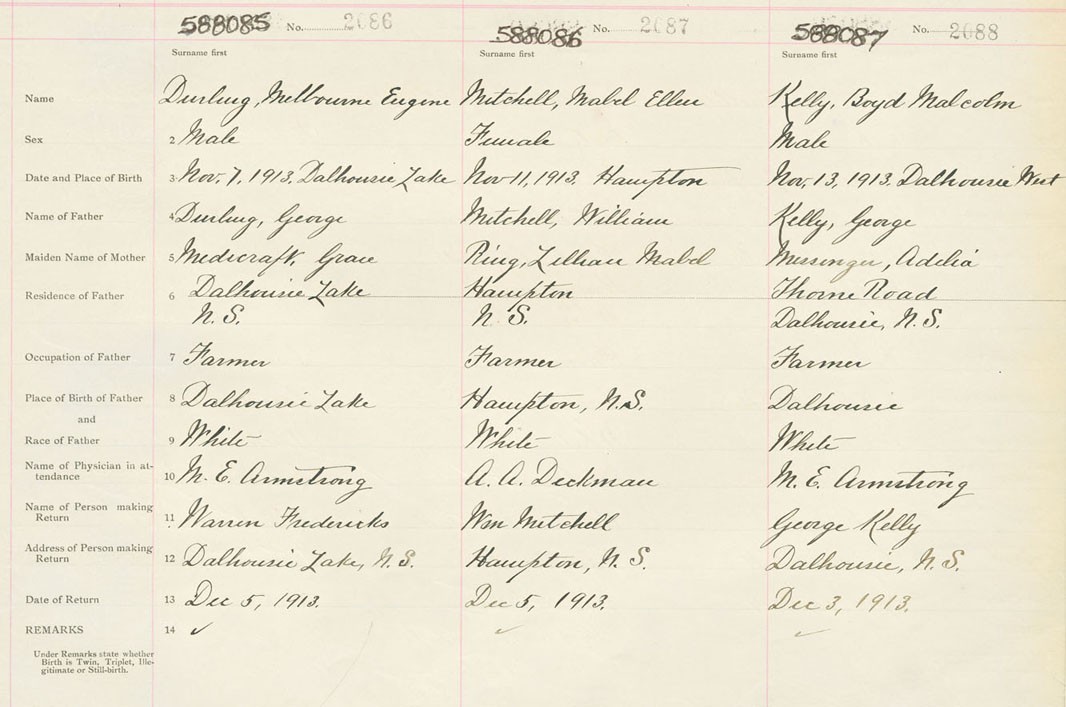 588085 No. 2086 588086 No. 2087 588087 No. 2088
Surname first Surname first Surname first
Name Durling, Melbourne Eugene Mitchell, Mabel Ellen Kelly, Boyd Malcolm
Sex 2 Male Female Male
Date and Place of Birth 3 Nov. 7, 1913. Dalhousie Lake Nov 11, 1913. Hampton Nov. 13, 1913. Dalhousie West
Name of Father 4 Durling, George Mitchell, William Kelly, George
Maiden Name of Mother 5 Medicraft, Grace Ring, Lillian Mabel Messenger, Adelia
Residence of Father 6 Dalhousie Lake Hampton Thorne Road
N. S. N. S. Dalhousie, N. S.
Occupation of Father 7 Farmer Farmer Farmer
Place of Birth of Father 8 Dalhousie Lake Hampton, N.S. Dalhousie
and
Race of Father 9 White White White
Name of Physician in at-
tendance 10 M. E. Armstrong A. A. Deckman M. E. Armstrong
Name of Person making
Return 11 Warren Fredericks Wm Mitchell George Kelly
Address of Person making
Return 12 Dalhousie Lake, N. S. Hampton, N. S. Dalhousie, N. S.
Date of Return 13 Dec 5, 1913. Dec 5, 1913. Dec 3, 1913.
REMARKS 14 ✓ ✓ ✓
Under Remarks state whether
Birth is Twin, Triplet, Ille-
gitimate or Still-birth.